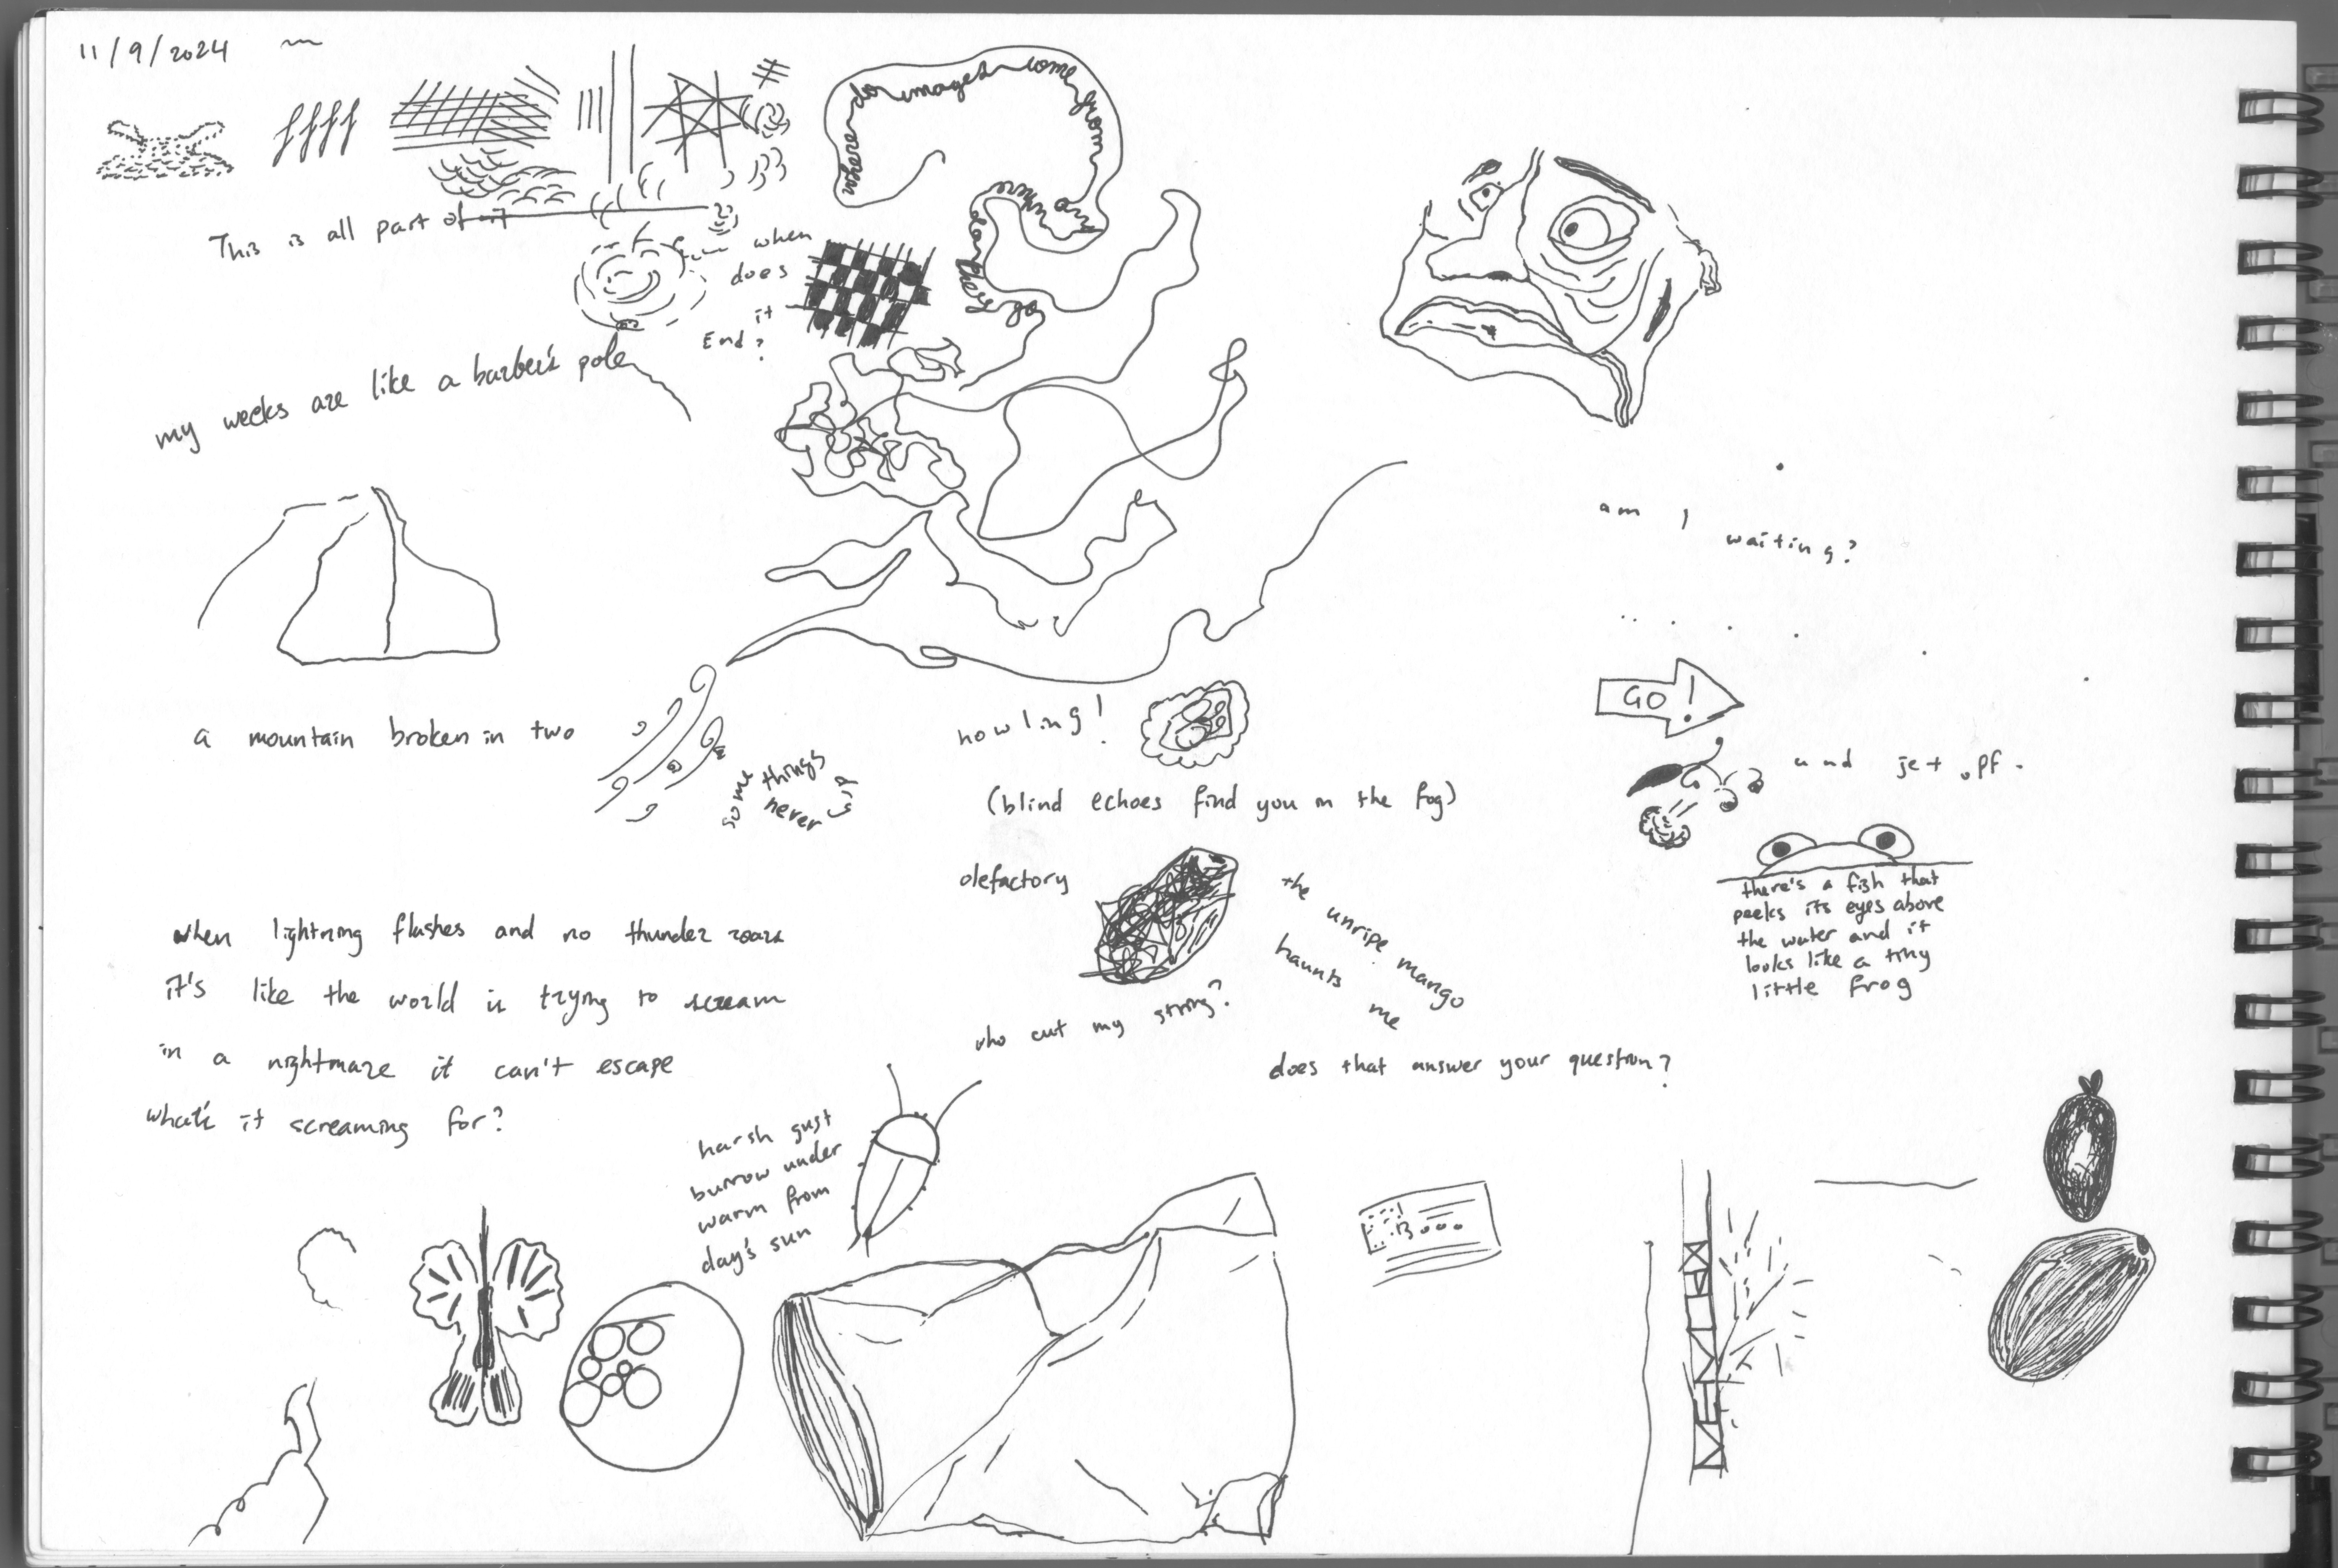 11/9/2024
This is all part of it
when
does
it
End?
where do images come from
and where
do they go
my weeks are like a barber's pole
am I
waiting?
GO!
a mountain broken in two
some things
never
howling!
(blind echoes find you in the fog)
und jet .pf.
olefactory
the unripe mango
haunts
me
who cut my string?
there's a fish that
peeks its eyes above
the water and it
looks like a tiny
little frog
does that answer your question?
when lightning flashes and no thunder roars
it's like the world is trying to scream
in a nightmare it can't escape
what's it screaming for?
harsh gust
burrow under
warm from
day's sun
13000